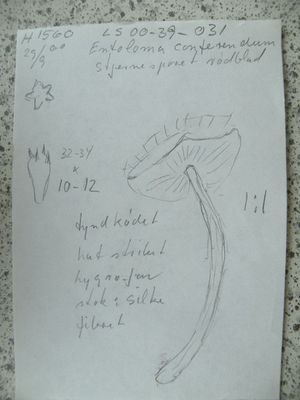 H 1560 LS 00-39-031
25/9 00 Entoloma conferendum
stjernesporet rødblad
32-34
x
10-12
1:1
tyndkødet
hat stribet
hygrofan
stok: silke
fibret